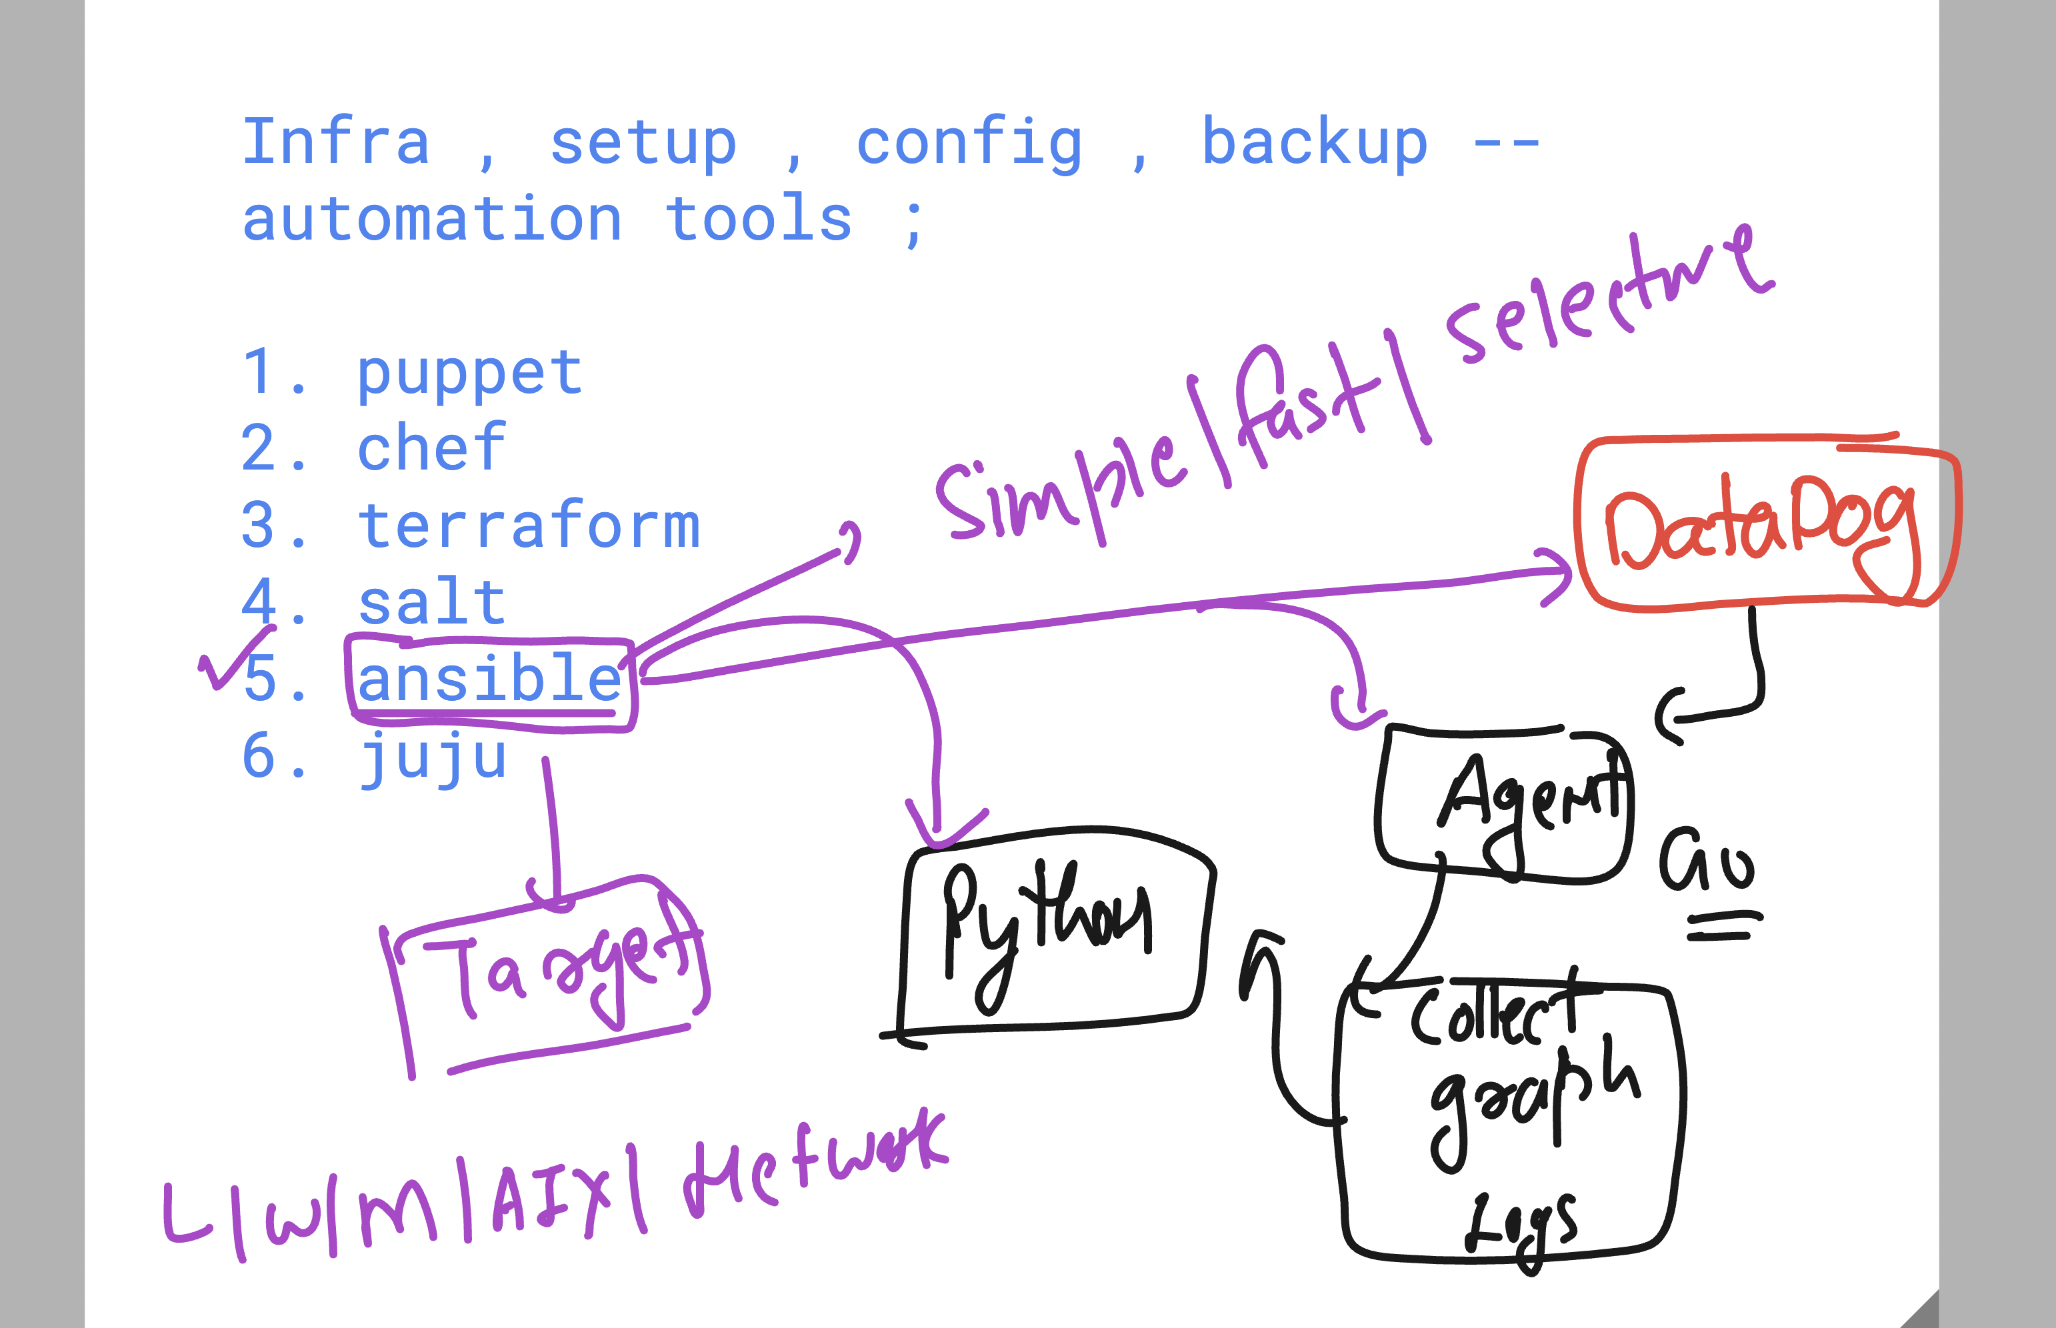 Infra , setup , config , backup --
automation tools ;
1. puppet
2. chef
3. terraform
4. salt
5. ansible
6. juju
Simple/fast/ selective
DataDog
Agent
Go
Python
Target
Collect
graph
Logs
L/W/M/AIX/Network